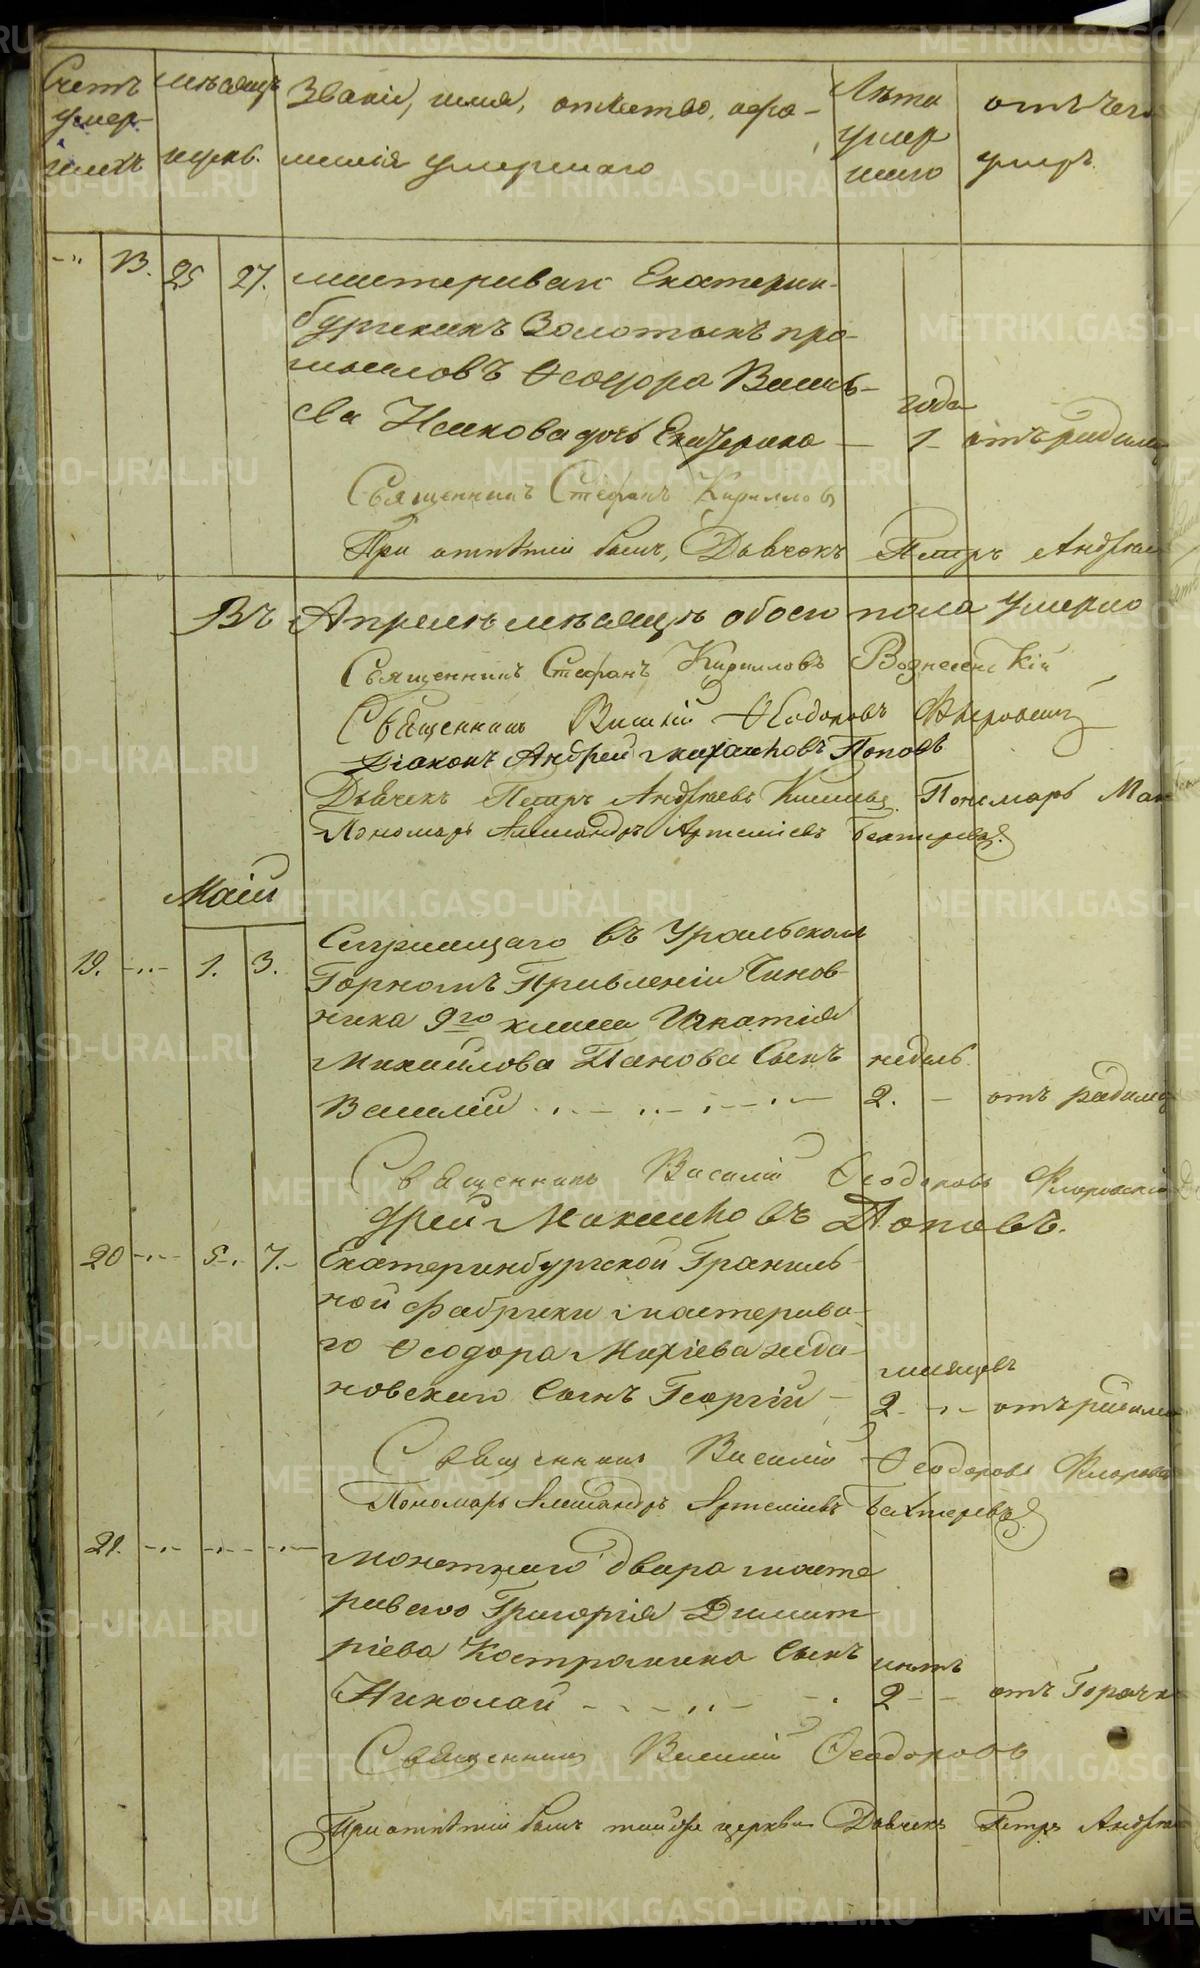 Счетъ умер- шихъ
мѣсяцъ, числ.
Званіе, имя, отчество, и фа-
милія умершаго
Лѣта умер шаго
отъ чего умеръ.
В. 25 27. мастероваго Екатерин-
бургскихъ Золотыхъ про-
мысловъ Ѳеодора Василь-
ева дочь Екатерина — года 1 — отъ родим
Священникъ Стефанъ Кирилловъ
При отпѣтіи былъ, Дьячекъ Петръ Андреев
Въ Апрелѣ мѣсяцѣ обоего пола умерло
Священникъ Стефанъ Кирилловъ Вознесенскій
Священникъ Василій Ѳеодоровъ Флоровскій
Діаконъ Андрей Михайловъ Поповъ
Дьячекъ Петръ Андреевъ Пономарь
Пономарь Александръ Артеміевъ Бехтеревъ.
Маій
19. 1. 3. Служащаго въ Уральскомъ
Горномъ Правленіи Чинов-
ника 9го класса Игнатія
Михайлова Панова Сынъ недѣль
Василій 2. — отъ родимц
Священникъ Василій Ѳеодоровъ Флоровскій
дрей Михайловъ Поповъ.
20 5. 7. Екатеринбургской Граниль-
ной фабрики мастерова-
го Ѳеодора Жда-
новскаго Сынъ Георгій — мѣсяцевъ
2. — отъ родим
Священникъ Василій Ѳеодоровъ Флоровс
Пономарь Александръ Артеміевъ Бехтеревъ
21. Монетнаго двора масте
роваго Григорія Димит
ріева Сынъ лѣтъ
Николай 2 — отъ Горячк
Священникъ Василій Ѳеодоровъ
При отпѣтіи былъ той же церкви Дьячекъ Петръ Андреев
METRIKI.GASO-URAL.RU